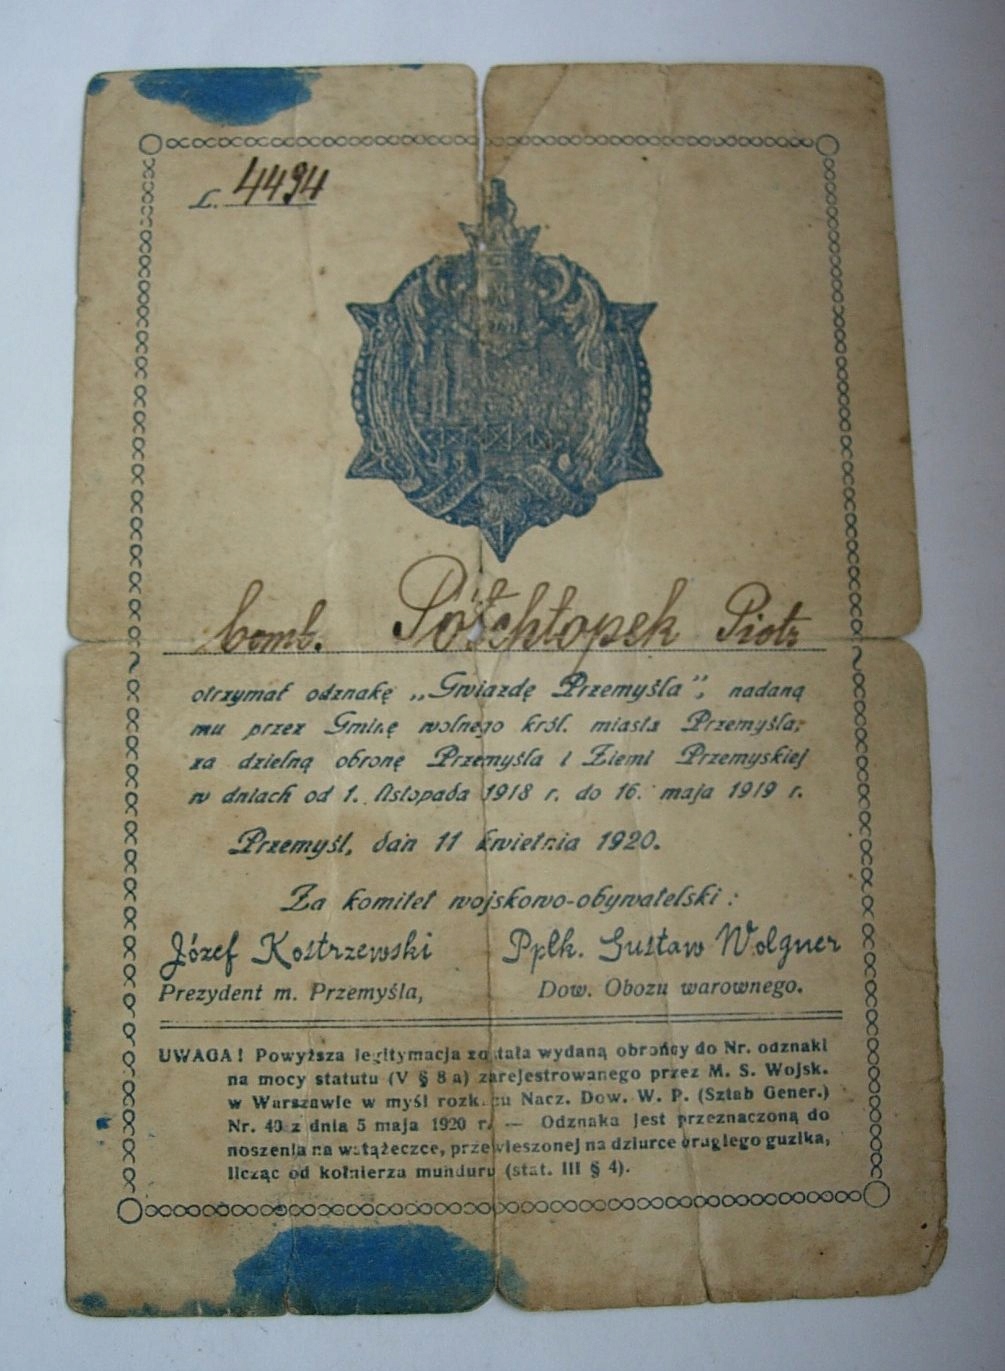 L. 4494
bomb. Półchłopek Piotr
otrzymał odznakę „Gwiazdę Przemyśla”, nadaną
mu przez Gminę wolnego król. miasta Przemyśla,
za dzielną obronę Przemyśla i Ziemi Przemyskiej
w dniach od 1. listopada 1918 r. do 16. maja 1919 r.
Przemyśl, dań 11 kwietnia 1920.
Za komitet wojskowo-obywatelski :
Józef Kostrzewski Ppłk. Gustaw Wolgner
Prezydent m. Przemyśla, Dow. Obozu warownego.
UWAGA! Powyższa legitymacja została wydaną obrońcy do Nr. odznaki
na mocy statutu (V § 8 a) zarejestrowanego przez M. S. Wojsk.
w Warszawie w myśl rozkazu Nacz. Dow. W. P. (Sztab Gener.)
Nr. 40 z dnia 5 maja 1920 r. — Odznaka jest przeznaczoną do
noszenia na wstążeczce, przewieszonej na dziurce drugiego guzika,
licząc od kołnierza munduru (stat. III § 4).